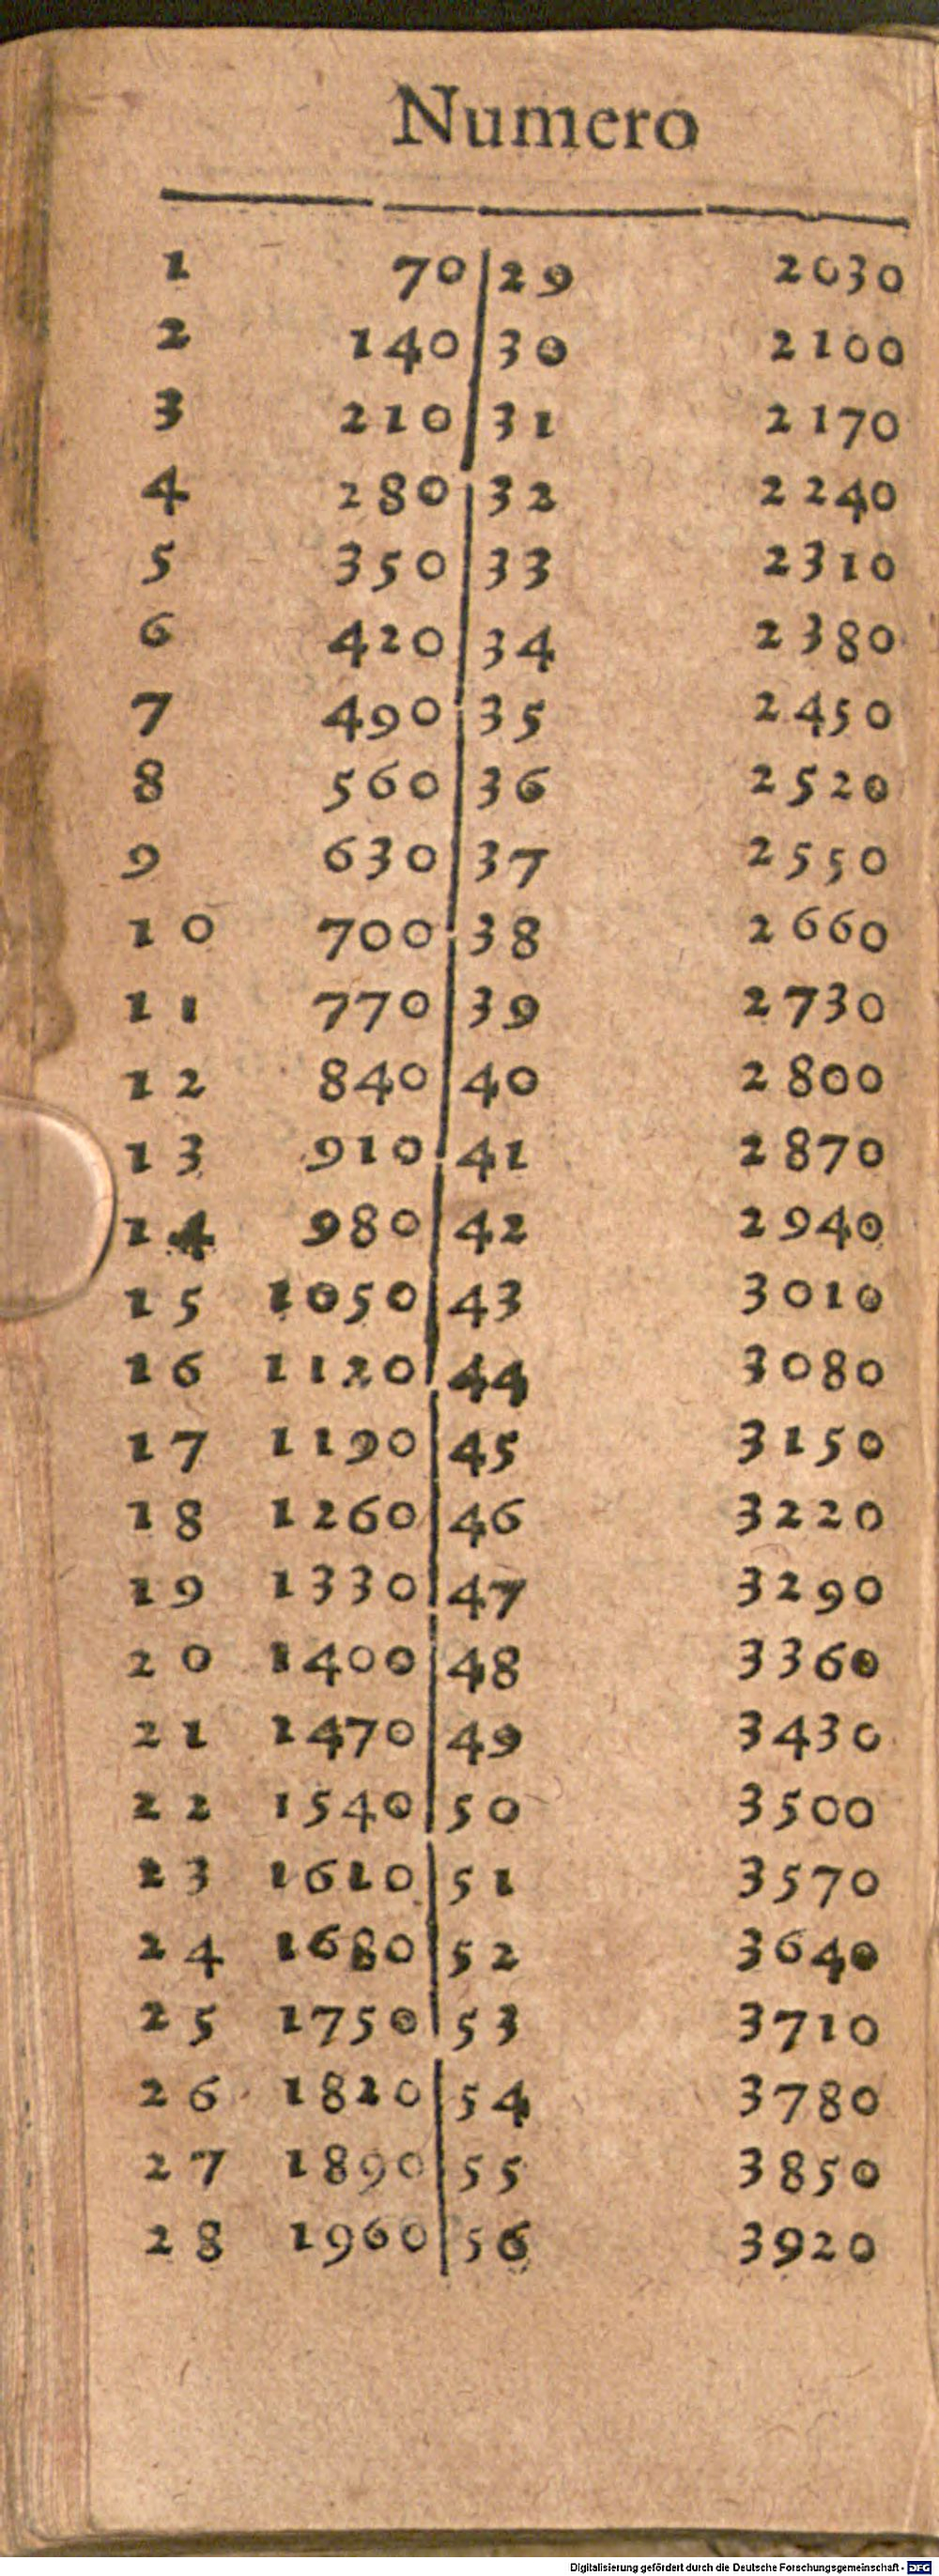 Numero
1 70 29 2030
2 140 30 2100
3 210 31 2170
4 280 32 2240
5 350 33 2310
6 420 34 2380
7 490 35 2450
8 560 36 2520
9 630 37 2550
10 700 38 2660
11 770 39 2730
12 840 40 2800
13 910 41 2870
14 980 42 2940
15 1050 43 3010
16 1120 44 3080
17 1190 45 3150
18 1260 46 3220
19 1330 47 3290
20 1400 48 3360
21 1470 49 3430
22 1540 50 3500
23 1610 51 3570
24 1680 52 3640
25 1750 53 3710
26 1820 54 3780
27 1890 55 3850
28 1960 56 3920
Digitalisierung gefördert durch die Deutsche Forschungsgemeinschaft - DFG